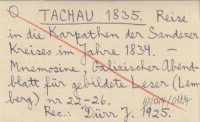 TACHAU 1835. Reise
in die Karpathen der Sandezer
Kreises im Jahre 1834. —
Mnemosine, Galizischer Abend-
blatt für gebildete Leser (Lem-
berg) nr 22-26.
Rec.: Dürr J. 1925.